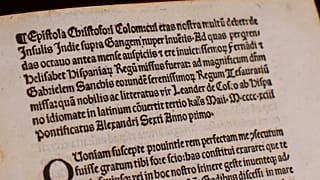 ¶Epistola Christofori Colom: cui etas nostra multū debet: de
Insulis Indie supra Gangem nuper inuētis. Ad quas perqren-
das octauo antea mense auspiciis ⁊ ere inuictissimoꝝ Fernādi ⁊
Helisabet Hispaniaꝝ Regū missus fuerat: ad magnificum dñm
Gabrielem Sanchis eorundē serenissimoꝝ Regum Tesaurariū
missa: quā nobilis ac litteratus vir Leander de Cosco ab Hispa
no idiomate in latinum cōuertit tertio kals Maii M cccc xciii
Pontificatus Alexandri Sexti Anno primo.
Quoniam suscepte prouintie rem perfectam me cōsecutum
fuisse gratum tibi fore scio: has constitui exarare: que te
rei in hoc nostro itinere geste inuenteqꝫ ad
Gadibus discessi in mare